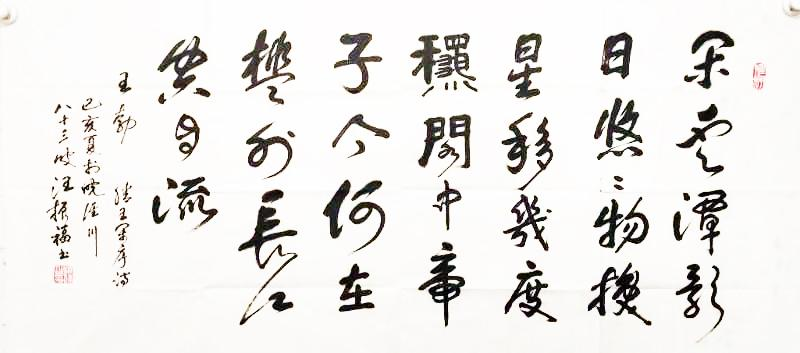 閑雲潭影
日悠〻物換
星移幾度
龝閣中帝
子今何在
檻外長江
空自流
王勃 滕王閣序詩
己亥夏於皖涇川
八十三叟汪振福書